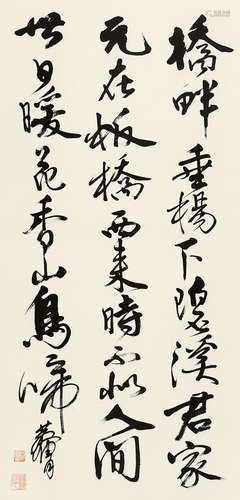 橋畔垂楊下碧溪君家
元在板橋西來時不似人間
世日暖花香山鳥啼